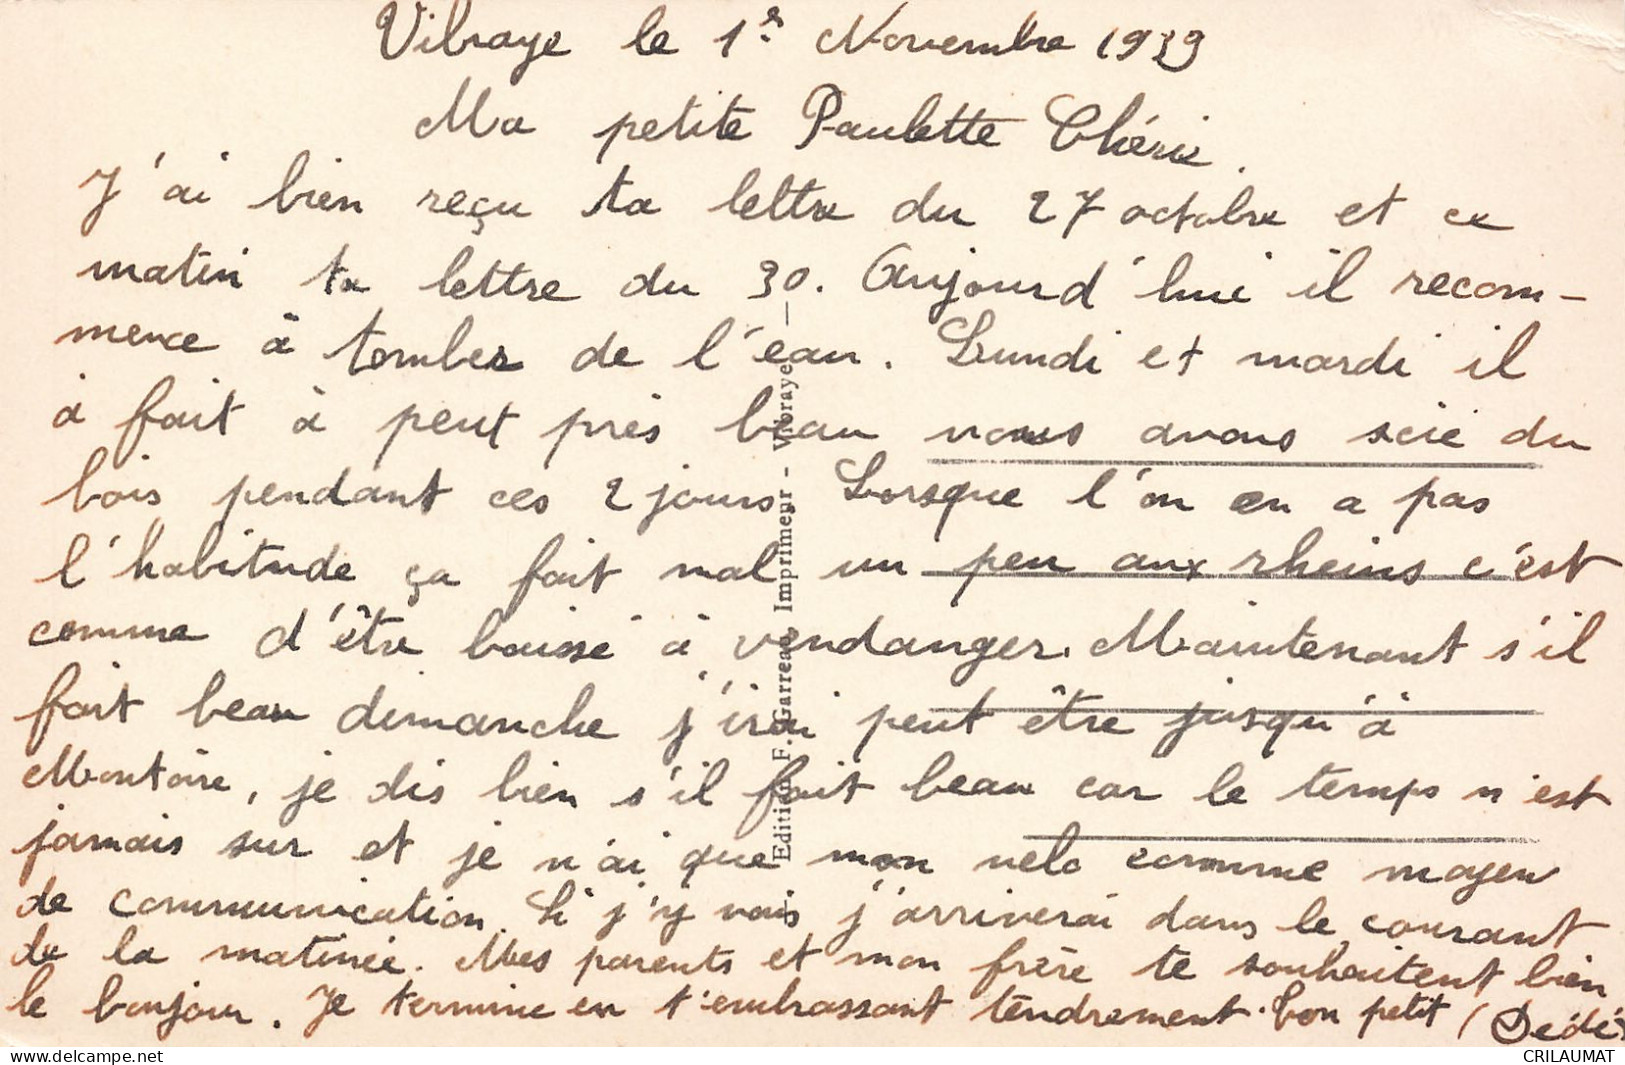 Vibraye le 1er Novembre 1939
Ma petite Paulette Chérie.
J'ai bien reçu ta lettre du 27 octobre et ce
matin ta lettre du 30. Aujourd'hui il recom-
mence à tomber de l'eau. Lundi et mardi il
à fait à peut près beau nous avons scié du
bois pendant ces 2 jours. Lorsque l'on en a pas
l'habitude ça fait mal un peu aux rheins c'est
comme d'être baissé à vendanger. Maintenant s'il
fait beau dimanche j'irai peut être jusqu'à
Montoire, je dis bien s'il fait beau car le temps n'est
jamais sur et je n'ai que mon velo comme moyen
de communication. Si j'y vais j'arriverai dans le courant
de la matinée. Mes parents et mon frère te souhaitent bien
le bonjour. Je termine en t'embrassant tendrement. Ton petit (Dédé)
Edition F. Garreau, Imprimeur - Vibraye
delcampe.net
CRILAUMAT